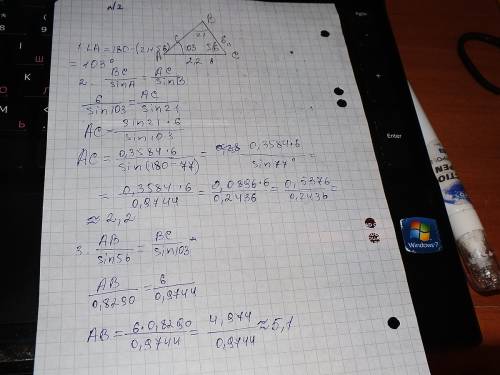 №2
B
21
c 6
103 56
A 2,2 B C
1. LA = 180 - (21+56)
= 103°
2. BC/sinA = AC/sinB
6/sin103 = AC/sin21
AC = sin21 · 6/sin103
AC = 0,3584 · 6/sin(180-77) = 0,3584 · 6/sin77° =
= 0,3584 · 6/0,9744 = 0,0896 · 6/0,2436 = 0,5376/0,2436 =
≈ 2,2
3. AB/sin56 = BC/sin103
AB/0,8290 = 6/0,9744
AB = 6 · 0,8290/0,9744 = 4,974/0,9744 ≈ 5,1
Enter
Windows 7